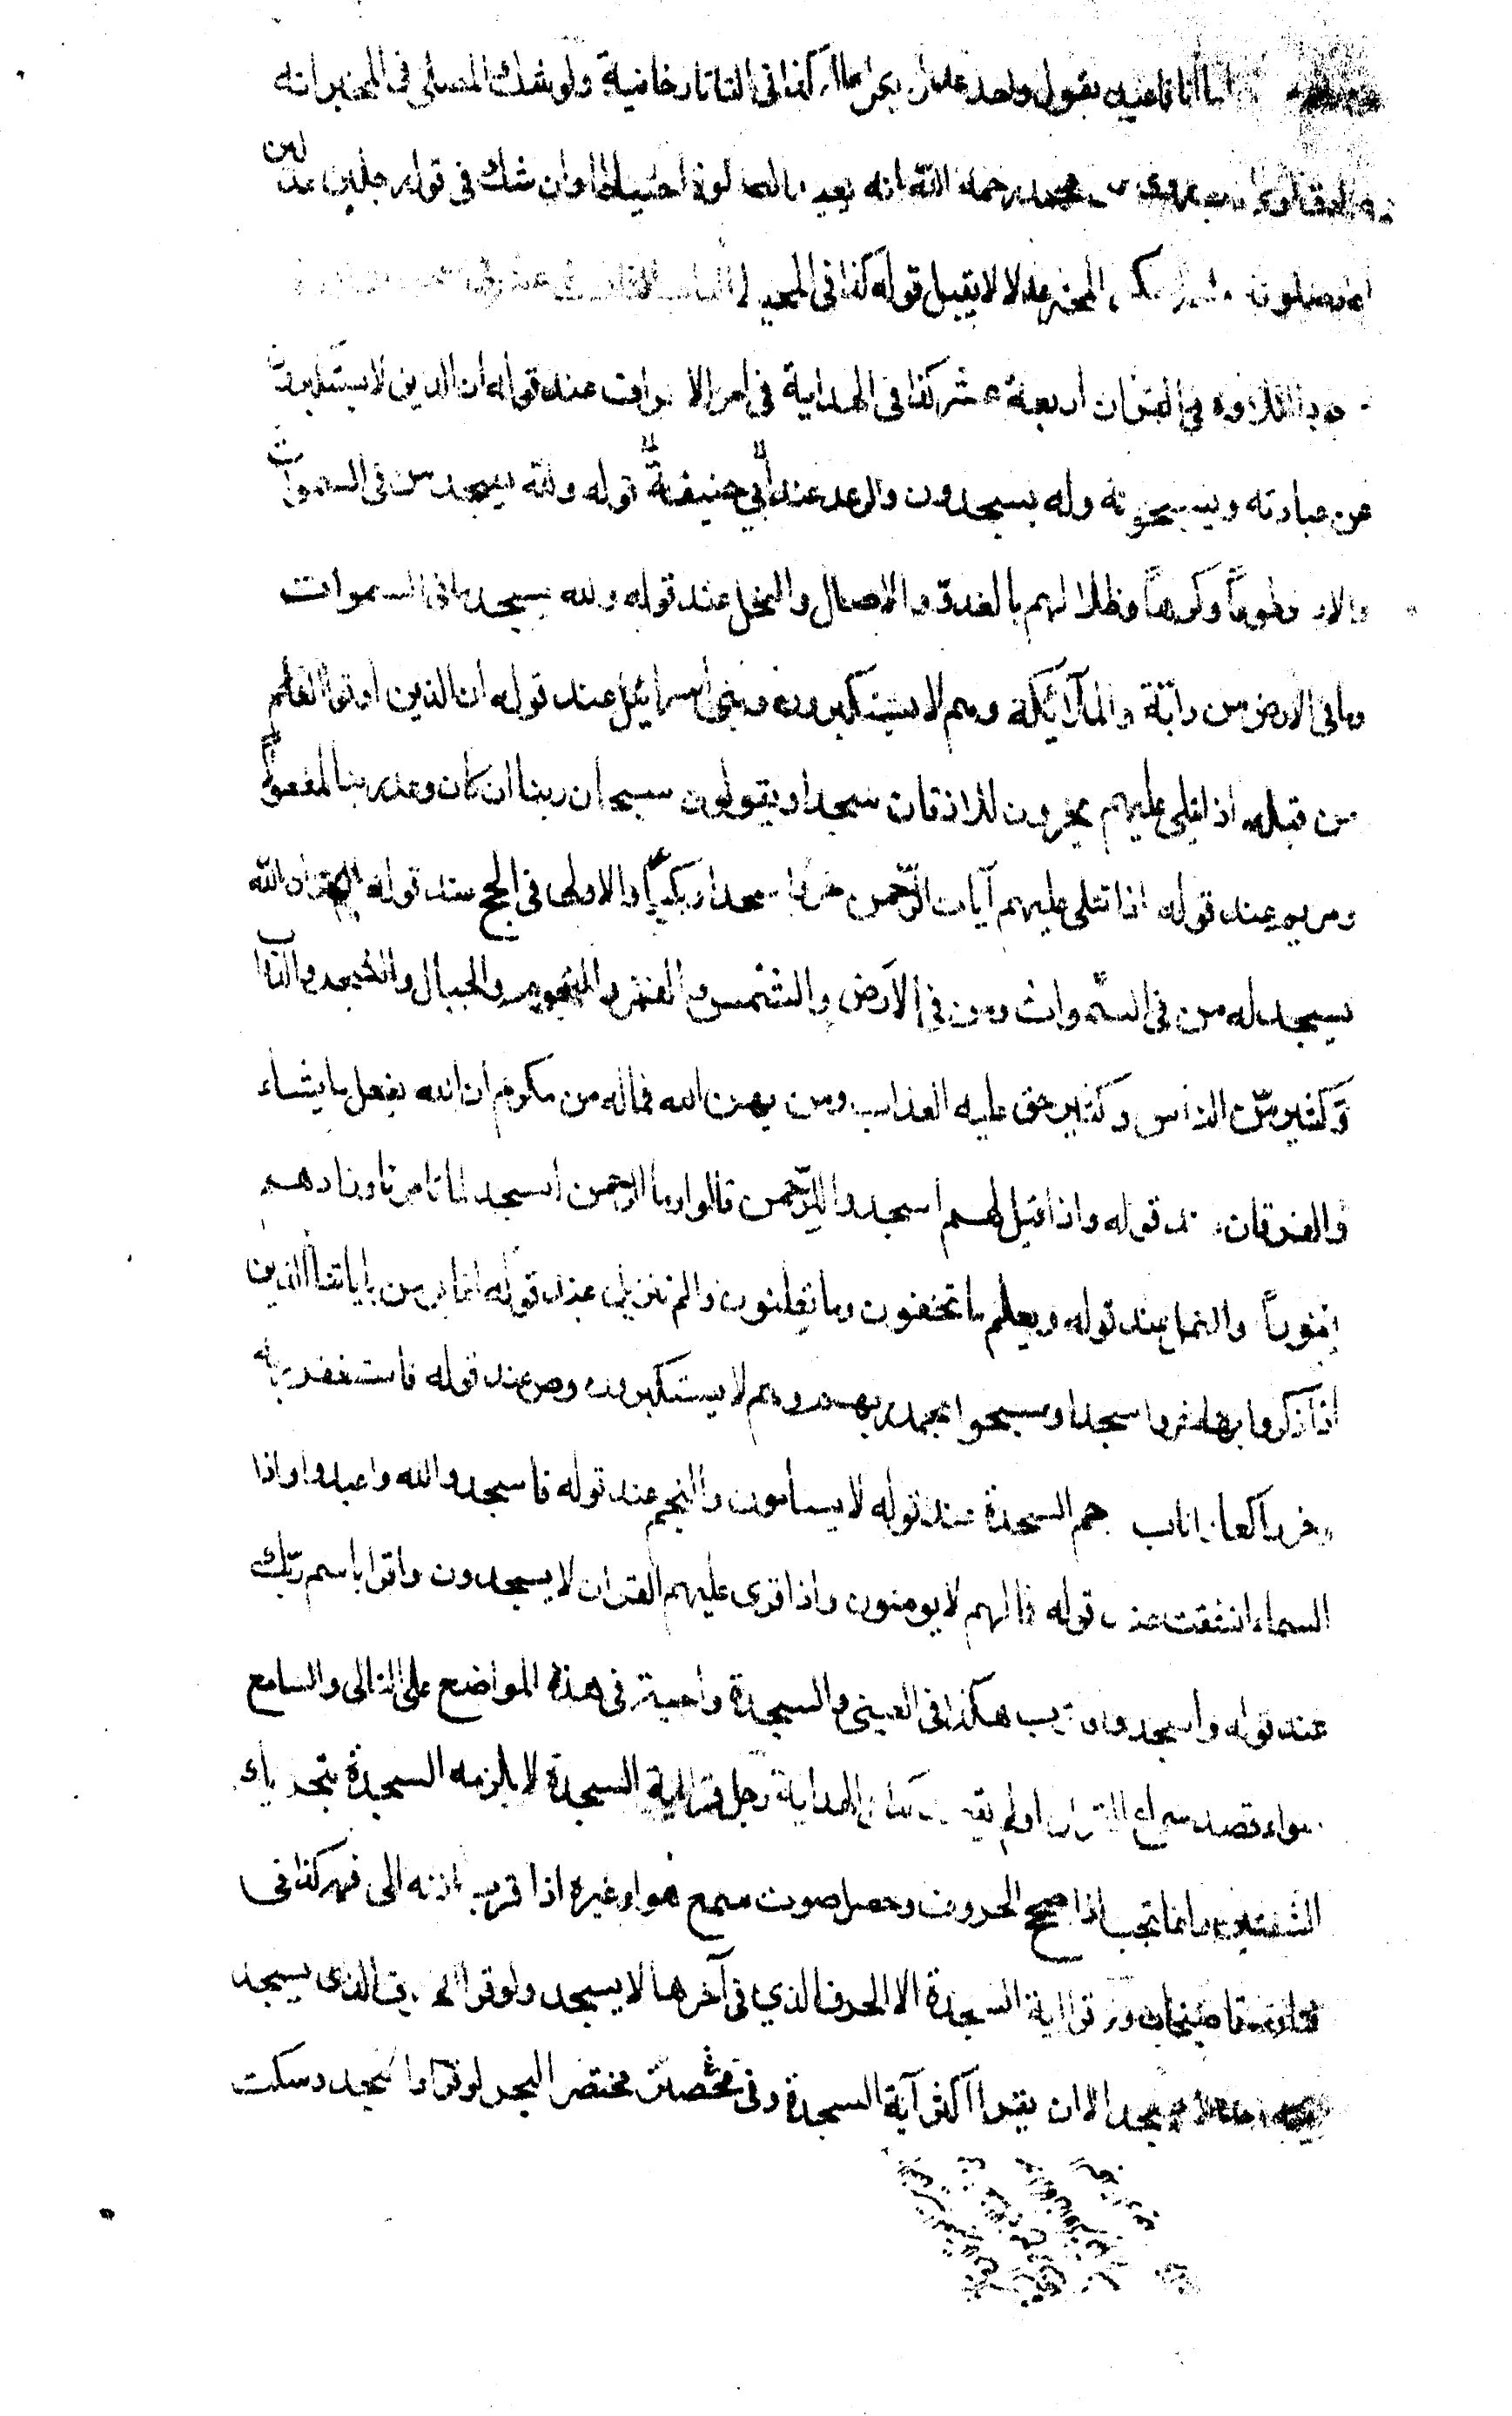 بقول واحد كذا فى التاتارخانية ولو شك المصلى فى المخبر انه
محمد رحمه الله انه يعيد احتياطا وان شك فى قول رجلين عدلين
لا يقبل قوله كذا فى المحيط
التلاوة فى القران اربعة عشر كذا فى الهداية فى اخر الاعراف عند قوله ان الذين لا يستكبرون
عن عبادته ويسبحونه وله يسجدون والرعد عند أبي حنيفة قوله ولله يسجد من فى السموات
والارض طوعاً وكرهاً وظلالهم بالغدوّ والاصال والنحل عند قوله ولله يسجد ما فى السموات
وما فى الارض من دابّة والملآئكة وهم لا يستكبرون وبنى اسرائيل عند قوله ان الذين اوتوا العلم
من قبله اذا يتلى عليهم يخرون للاذقان سجدا ويقولون سبحان ربنا ان كان وعد ربنا لمفعولاً
ومريم عند قوله اذا تتلى عليهم آيات الرّحمن خروا سجدا وبكيّاً والاولى فى الحج عند قوله الم تر ان الله
يسجد له من فى السّموات ومن في الارَض والشّمس والقمر والنجوم والجبال والشجر والدّوابّ
وَكثير مّن الناس وكثير حق عليه العذاب ومن يهن الله فما له من مكرم ان الله يفعل ما يشاء
والفرقان عند قوله واذا قيل لهم اسجدوا للرّحمن قالوا وما الرحمن انسجد لما تامرنا وزادهم
نفوراً والنمل عند قوله ويعلم ما تخفون وما تعلنون والم تنزيل عند قوله انما يومن باياتنا الذين
اذا ذكروا بها خروا سجدا وسبحوا بحمد ربهم وهم لا يستكبرون وص عند قوله فاستغفر ربه
وخر راكعا واناب حم السجدة عند قوله لا يسأمون والنجم عند قوله فاسجدوا لله واعبدوا واذا
السماء انشقت عند قوله فما لهم لا يومنون واذا قرى عليهم القران لا يسجدون واقرا باسم ربّك
عند قوله وأسجد واقترب هكذا فى العينى والسجدة واجبة فى هذه المواضع على التالى والسامع
سواء قصد سماع القران او لم يقصد كذا فى الهداية رجل قرا اية السجدة لا يلزمه السجدة بتحريك
الشفتين وانما تجب اذا صحح الحروف وحصل صوت سمع هو او غيره اذا قرب اذنه الى فمه كذا فى
فتاوى قاضيخان ولو قرا اية السجدة الا الحرف الذي فى آخرها لا يسجد ولو قرا الحرف الذى يسجد
يسجد الا ان يقرا اكثر آية السجدة وفى مختصر البحر لو قرا واسجد وسكت